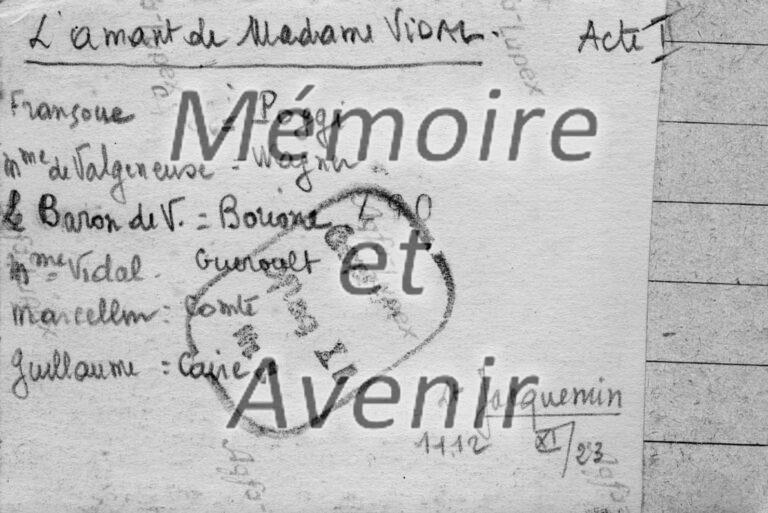 L'amant de Madame VIDAL. Acte I
Françoise = Poggi
Mme de Valgeneuse = Wagner
Le Baron de V. = Borione
Mme Vidal. Gueroult
Marcellin = Comte
Guillaume = Caire
Dr Jacquemin
1112 XI/23
Mémoire
et
Avenir
Agfa-Lupex